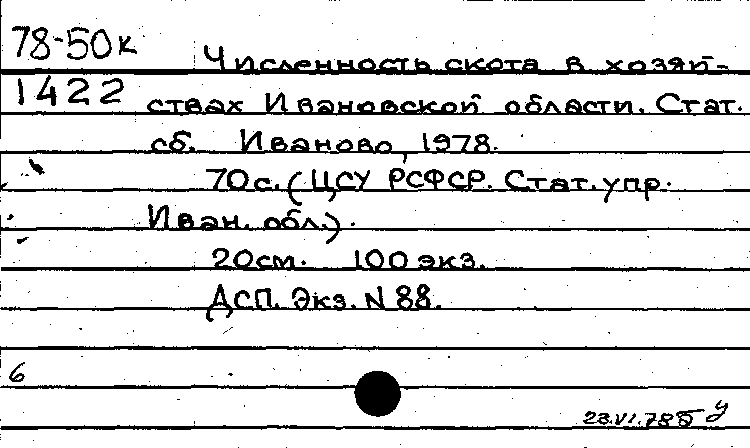 78-50к Численность скота в хозяй-
1422 ствах Ивановской области. Стат.
сб. Иваново, 1978.
70с. (ЦСУ РСФСР. Стат. упр.
Иван. обл.).
20см. 100 экз.
ДСП. Экз. N 88.
6
23.VI.78